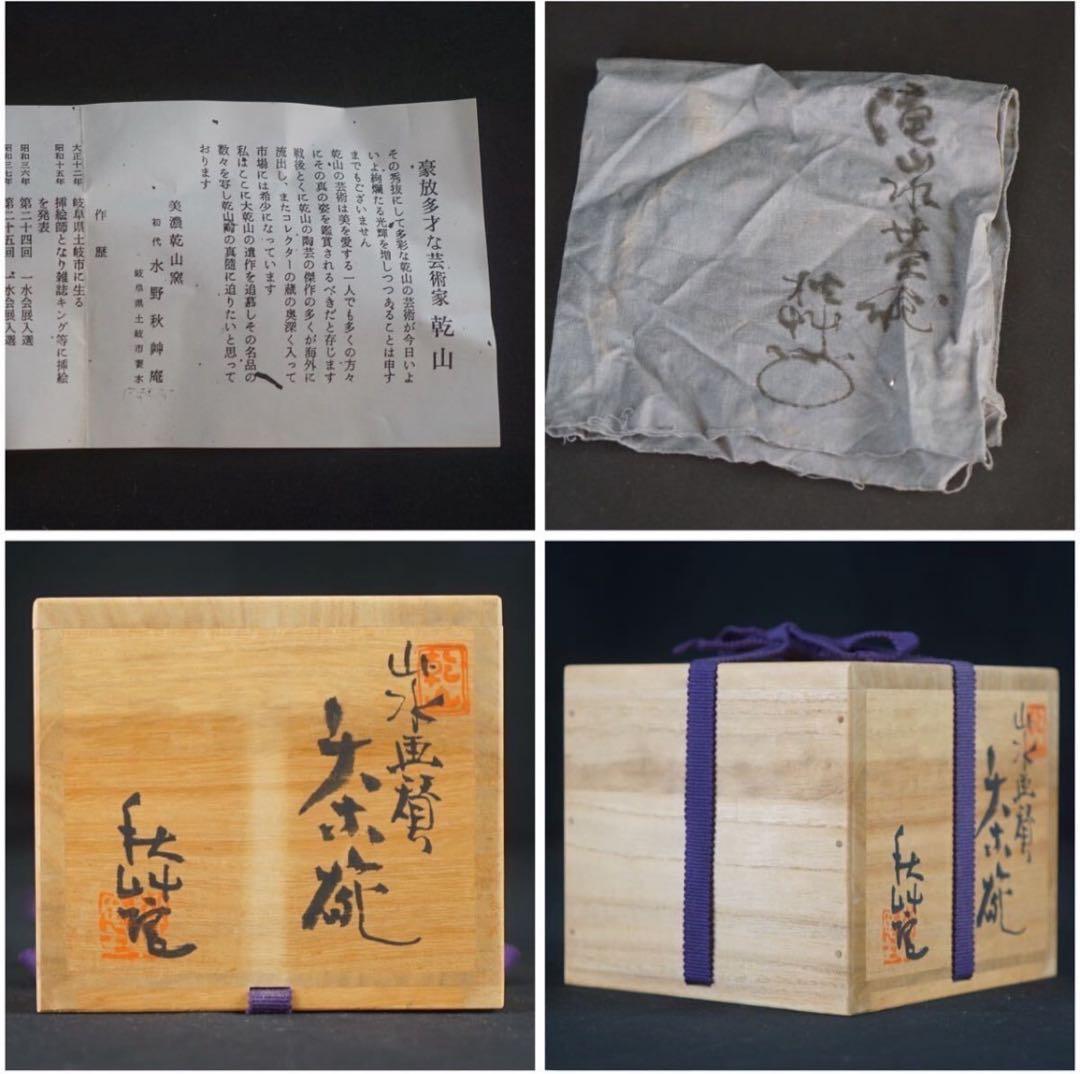 豪放多才な芸術家 乾山
その秀抜にして多彩な乾山の芸術が今日いよ
いよ絢爛たる光輝を増しつつあることは申す
までもございません
乾山の芸術は美を愛する一人でも多くの方々
にその真の姿を鑑賞されるべきだと存じます
戦後とくに乾山の陶芸の傑作の多くが海外に
流出し、またコレクターの蔵の奥深く入って
市場には希少になっています
私はここに大乾山の遺作を追慕しその名品の
数々を写し乾山陶の真随に迫りたいと思って
おります
美濃乾山窯
初代 水野秋艸庵
岐阜県土岐市妻木
作歴
大正十二年 岐阜県土岐市に生る
昭和十五年 挿絵師となり雑誌キング等に挿絵
を発表
昭和三六年 第二十四回 一水会展入選
昭和三七年 第二十五回 一水会展入選
山水茶碗
乾山
山水画賛
茶碗
秋艸庵
乾山
山水画賛
茶碗
秋艸庵